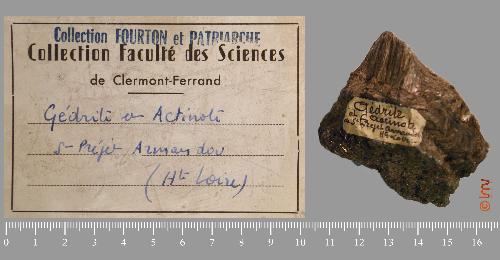 Collection FOURTON et PATRIARCHE
Collection Faculté des Sciences
de Clermont-Ferrand
Gédrite et Actinote
St Préjet Armandon
(Hte Loire)
Gédrite
et Actinote
St Préjet Armandon
Hte Loire
0 1 2 3 4 5 6 7 8 9 10 11 12 13 14 15 16